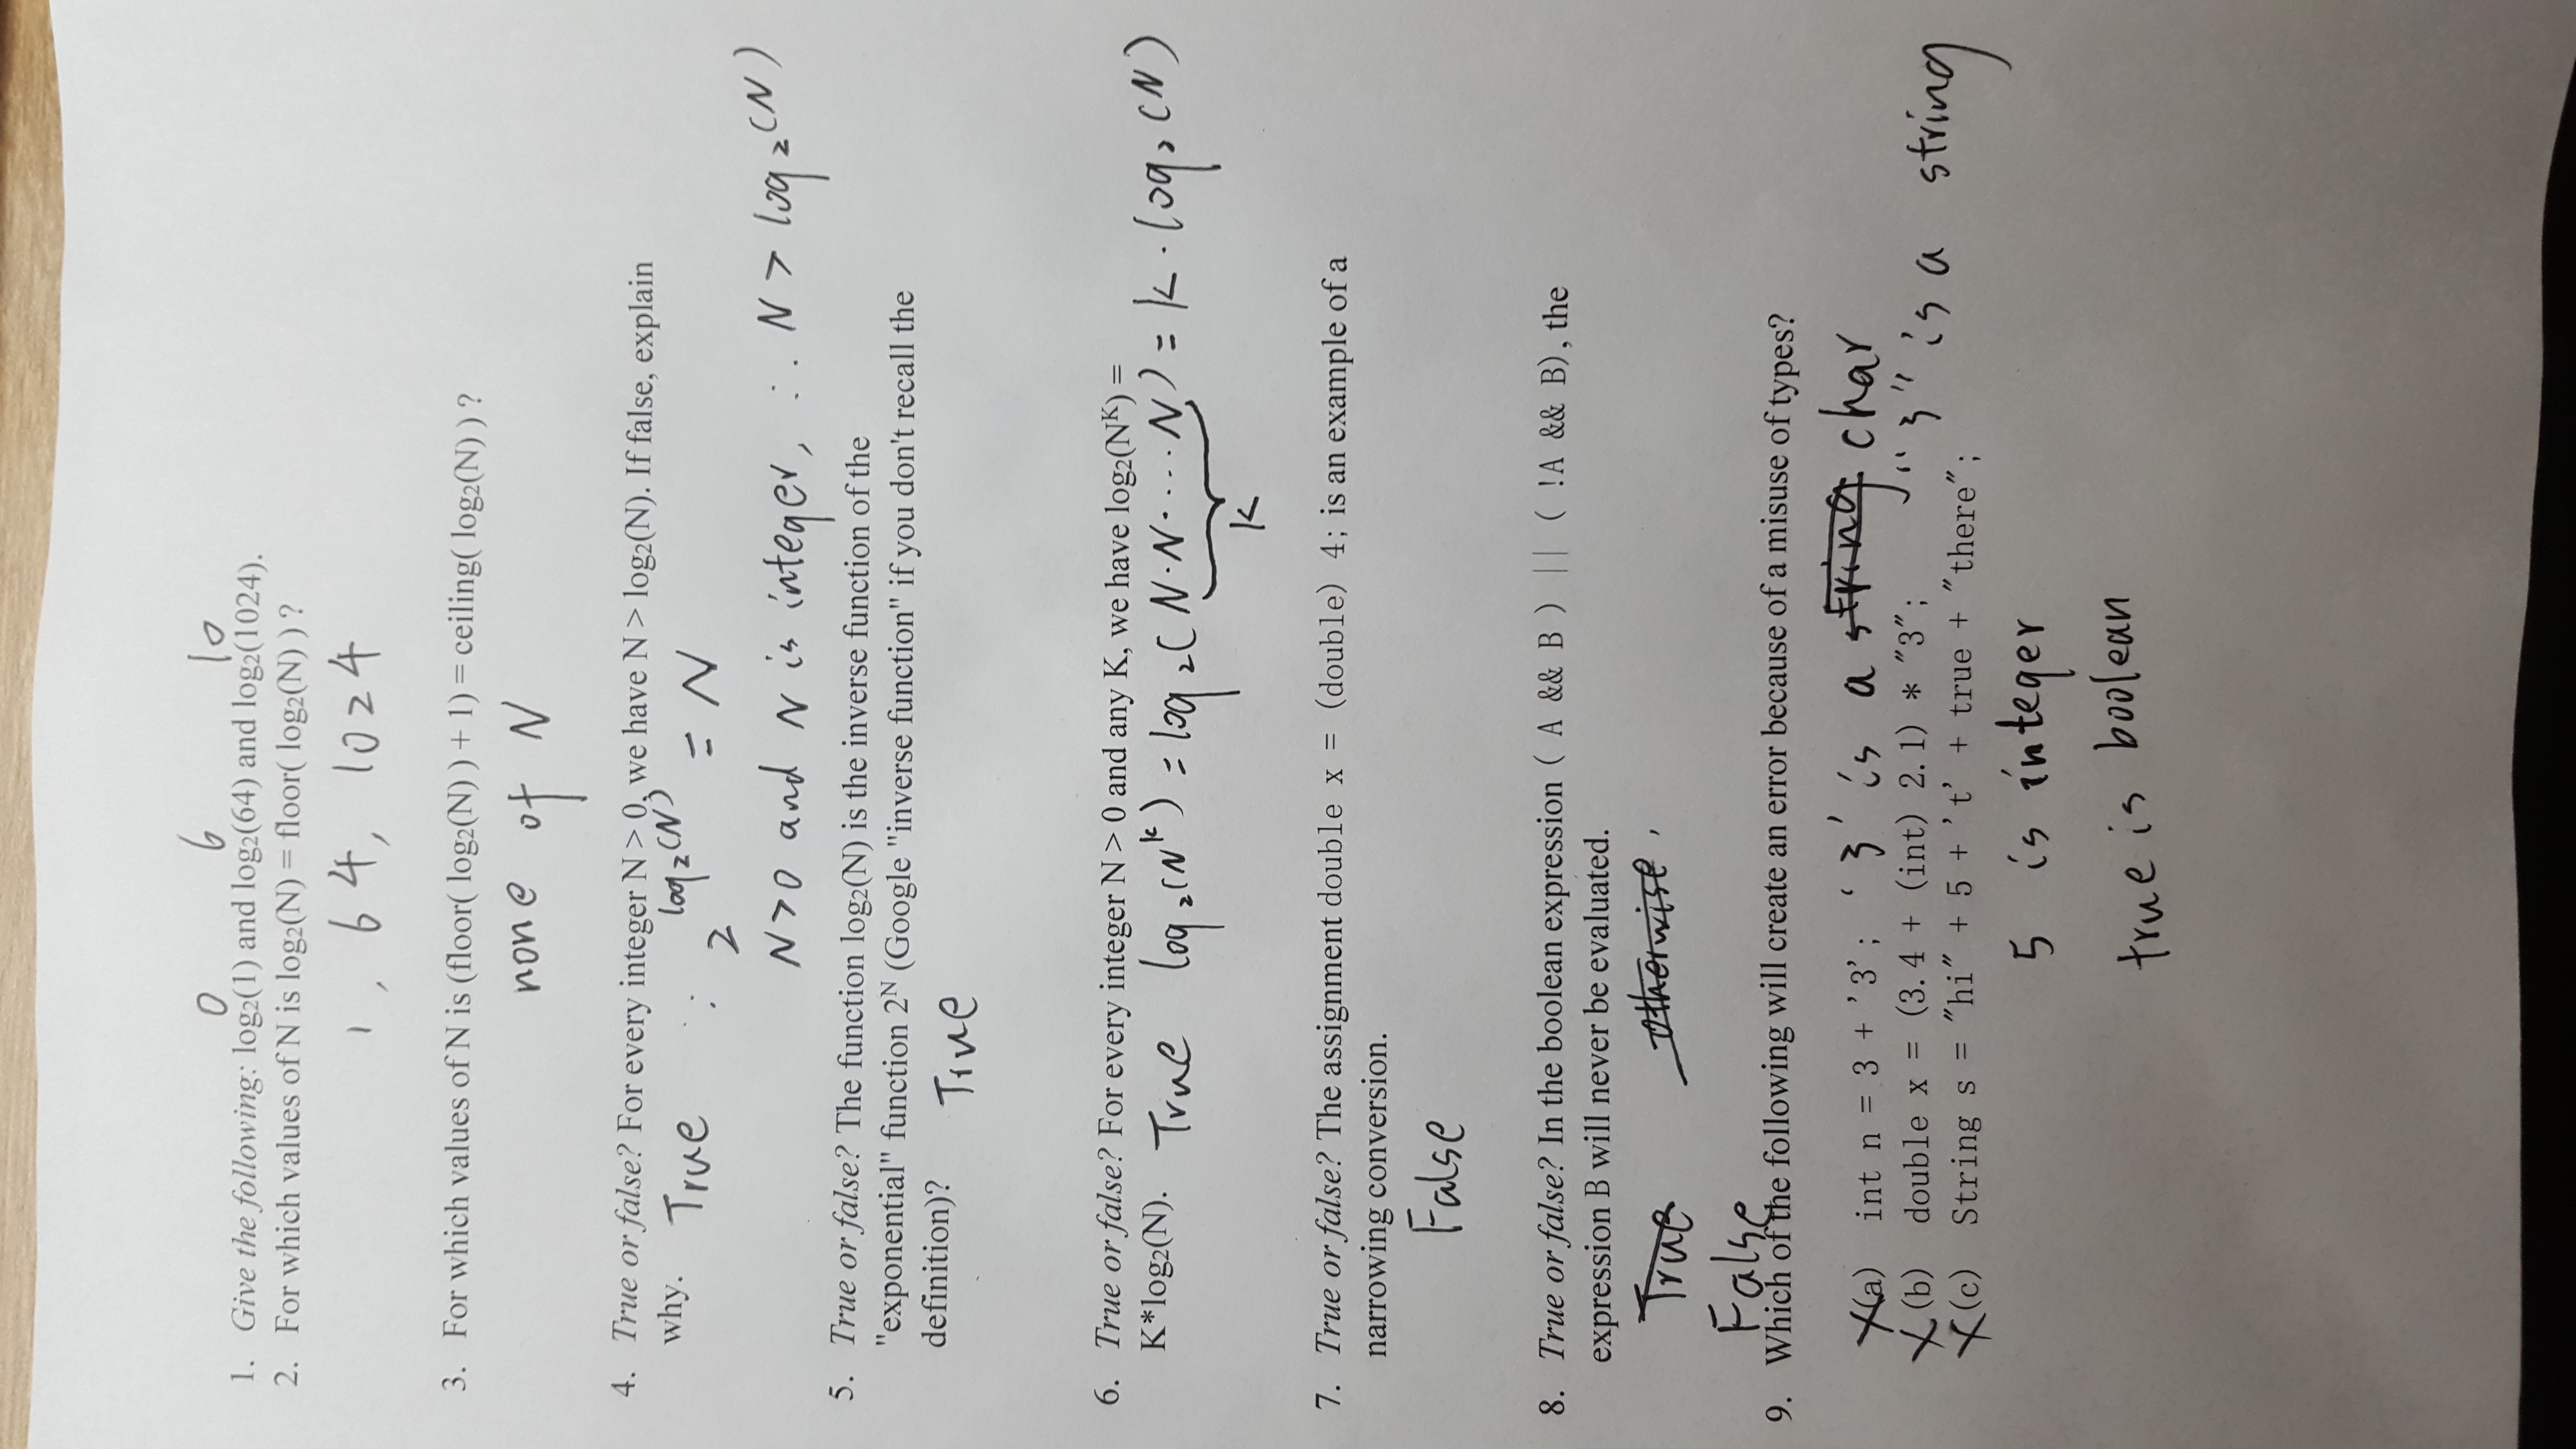 0 6 10
1. Give the following: log₂(1) and log₂(64) and log₂(1024).
2. For which values of N is log₂(N) = floor( log₂(N) ) ?
1 , 64, 1024
3. For which values of N is (floor( log₂(N) ) + 1) = ceiling( log₂(N) ) ?
none of N
4. True or false? For every integer N > 0, we have N > log₂(N). If false, explain
why. True ∵ 2^log₂(N) = N
N>0 and N is integer, ∴ N > log₂(N)
5. True or false? The function log₂(N) is the inverse function of the
"exponential" function 2ᴺ (Google "inverse function" if you don't recall the
definition)? True
6. True or false? For every integer N > 0 and any K, we have log₂(Nᴷ) =
K*log₂(N). True log₂(Nᵏ) = log₂(N·N·....N) = k · log₂(N)
k
7. True or false? The assignment double x = (double) 4; is an example of a
narrowing conversion.
False
8. True or false? In the boolean expression ( A && B ) || ( !A && B), the
expression B will never be evaluated.
True otherwise ,
False
9. Which of the following will create an error because of a misuse of types?
X(a) int n = 3 + '3'; '3' is a string char
X(b) double x = (3.4 + (int) 2.1) * "3"; "3" is a string
X(c) String s = "hi" + 5 + 't' + true + "there";
5 is integer
true is boolean